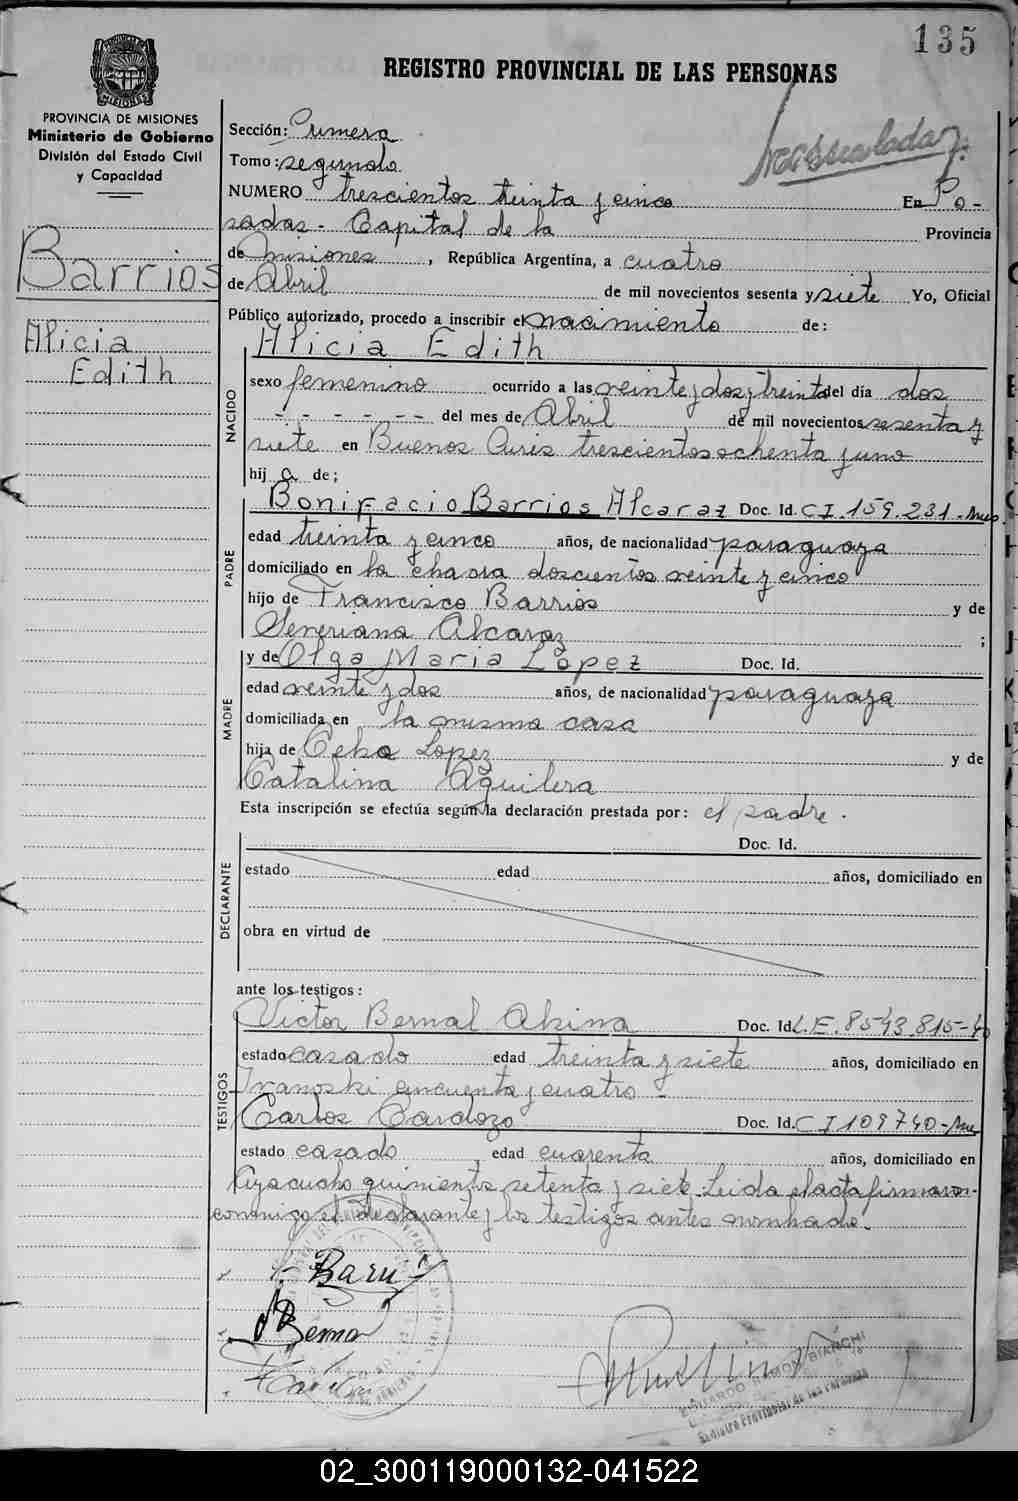 135
REGISTRO PROVINCIAL DE LAS PERSONAS
PROVINCIA DE MISIONES
Ministerio de Gobierno
División del Estado Civil
y Capacidad
Barrios
Alicia
Edith
Sección: Primera
Tomo: segundo
NUMERO trescientos treinta y cinco En Po-
sadas - Capital de la Provincia
de Misiones, República Argentina, a cuatro
de Abril de mil novecientos sesenta y siete Yo, Oficial
Público autorizado, procedo a inscribir el nacimiento de:
NACIDO
Alicia Edith
sexo femenino ocurrido a las veinte y dos y treinta del día dos
- - - - - - del mes de Abril de mil novecientos sesenta y
siete en Buenos Aires trescientos ochenta y uno
hij a de;
PADRE
Bonifacio Barrios Alcaraz Doc. Id. CI. 159.231-Mnes
edad treinta y cinco años, de nacionalidad paraguaya
domiciliado en la chacra doscientos veinte y cinco
hijo de Francisco Barrios y de
Severiana Alcaraz ;
MADRE
y de Olga Maria Lopez Doc. Id.
edad veinte y dos años, de nacionalidad paraguaya
domiciliada en la misma casa
hija de Lopez y de
Catalina Aguilera
Esta inscripción se efectúa según la declaración prestada por: el padre.
DECLARANTE
Doc. Id.
estado edad años, domiciliado en
obra en virtud de
ante los testigos:
TESTIGOS
Victor Bernal Doc. Id. L.E. 8543.815-
estado casado edad treinta y siete años, domiciliado en
cincuenta y cuatro -
Carlos Cardozo Doc. Id. CI 109740-
estado casado edad cuarenta años, domiciliado en
Ayacucho quinientos setenta y siete. Leida el acta firmaron
conmigo el declarante y los testigos antes nombrado.
Bernal
EDUARDO RAMON BIANCHI
Registro Provincial de las Personas
02_300119000132-041522